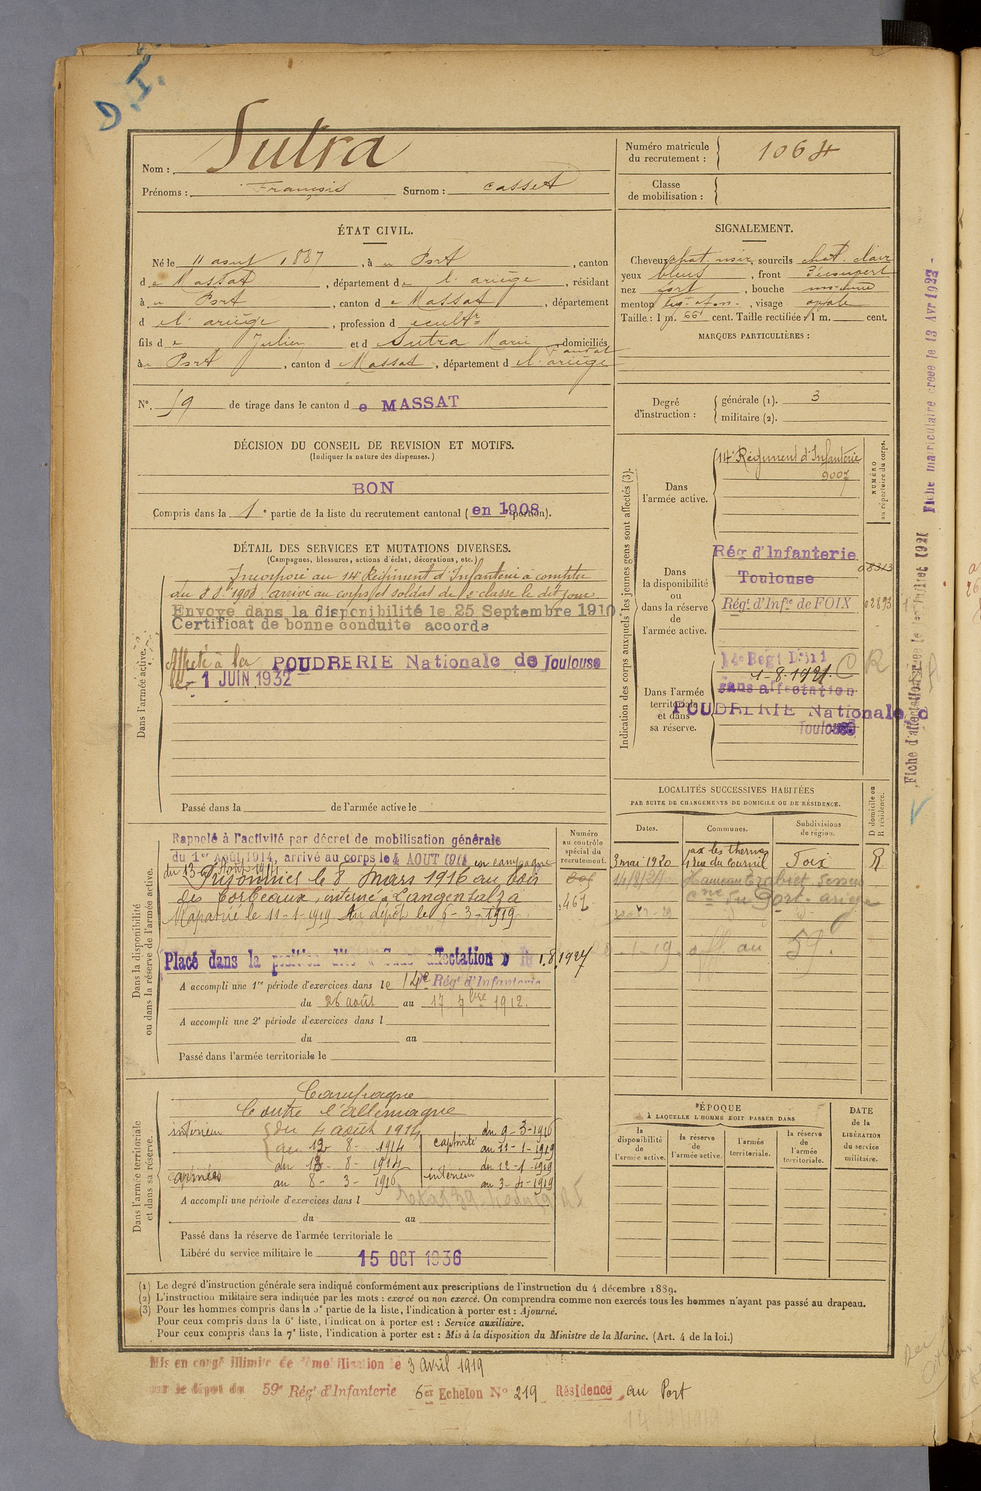 D. I.
Nom : Sutra
Prénoms : François Surnom : Casset
Numéro matricule
du recrutement : 1064
Classe
de mobilisation :
ÉTAT CIVIL.
Né le 11 août 1887, à u Port, canton
d e Massat, département de l'ariège, résidant
à u Port, canton d e Massat, département
d e l'ariège, profession d
fils d e Julien et d e Sutra Marie domiciliés
à u Port, canton d e Massat, département d e l'ariège
N°. 59 de tirage dans le canton d e MASSAT
SIGNALEMENT.
Cheveux chat. noir, sourcils chat. clair
yeux bleus, front Découvert
nez fort, bouche moyenne
menton, visage ovale
Taille : 1 m. cent. Taille rectifiée : 1 m. cent.
MARQUES PARTICULIÈRES :
Degré
d'instruction :
générale (1). 3
militaire (2).
DÉCISION DU CONSEIL DE REVISION ET MOTIFS.
(Indiquer la nature des dispenses.)
BON
Compris dans la 1e partie de la liste du recrutement cantonal (en 1908 portion).
DÉTAIL DES SERVICES ET MUTATIONS DIVERSES.
(Campagnes, blessures, actions d'éclat, décorations, etc.)
Dans l'armée active.
Incorporé au 14e Régiment d'Infanterie à compter
du 1908 arrivé au corps et soldat de 2e classe le dit jour
Envoyé dans la disponibilité le 25 Septembre 1910
Certificat de bonne conduite accordé
Affecté à la POUDRERIE Nationale de Toulouse
le - 1 JUIN 1932
Passé dans la de l'armée active le
Indication des corps auxquels les jeunes gens sont affectés (3).
NUMÉRO
au répertoire du corps.
Dans
l'armée active.
14e Régiment d'Infanterie
9007
Dans
la disponibilité
ou
dans la réserve
de
l'armée active.
Rég. d'Infanterie
Toulouse
Régt. d'Infie de FOIX
Dans l'armée
territoriale
et dans
sa réserve.
1-8-1921
sans affectation
POUDRERIE Nationale d
Toulouse
LOCALITÉS SUCCESSIVES HABITÉES
PAR SUITE DE CHANGEMENTS DE DOMICILE OU DE RÉSIDENCE.
Dates. Communes. Subdivisions
de région.
D domicile ou
R résidence.
3 mai 1920 ax les thermes Foix R
Dans la disponibilité
ou dans la réserve de l'armée active.
Numéro
au contrôle
spécial du
recrutement.
Rappelé à l'activité par décret de mobilisation générale
du 1er Août 1914, arrivé au corps le 4 AOUT 1914 en campagne
du 13 Août 1914
Prisonnier le 8 Mars 1916 au bois
des Corbeaux, interné à Langensalza
Rapatrié le 11-1-1919 Au dépôt le 6-3-1919
467
Placé dans la position dite « Sans affectation » 1.8.1927
A accompli une 1re période d'exercices dans le 14e Régt d'Infanterie
du 26 août au 17 7bre 1912.
A accompli une 2e période d'exercices dans l
du au
Passé dans l'armée territoriale le
Dans l'armée territoriale
et dans sa réserve.
Campagne
Contre l'allemagne
intérieur du 4 août 1914 captivité du 9-3-1916
au 12-8-1914 au 11-1-1919
armées du 13-8-1914 intérieur du 12-1-1919
au 8-3-1916 au 3-4-1919
A accompli une période d'exercices dans l
du au
Passé dans la réserve de l'armée territoriale le
Libéré du service militaire le 15 OCT 1936
ÉPOQUE
À LAQUELLE L'HOMME DOIT PASSER DANS
la
disponibilité
de
l'armée active.
la réserve
de
l'armée active.
l'armée
territoriale.
la réserve
de
l'armée
territoriale.
DATE
de la
LIBÉRATION
du service
militaire.
(1) Le degré d'instruction générale sera indiqué conformément aux prescriptions de l'instruction du 4 décembre 1889.
(2) L'instruction militaire sera indiquée par les mots : exercé ou non exercé. On comprendra comme non exercés tous les hommes n'ayant pas passé au drapeau.
(3) Pour les hommes compris dans la 5e partie de la liste, l'indication à porter est : Ajourné.
Pour ceux compris dans la 6e liste, l'indication à porter est : Service auxiliaire.
Pour ceux compris dans la 7e liste, l'indication à porter est : Mis à la disposition du Ministre de la Marine. (Art. 4 de la loi.)
Mis en congé illimité de démobilisation le 3 avril 1919
par le dépôt du 59e Régt d'Infanterie 6e Echelon N° 219 Résidence au Port
Fiche matriculaire créée le 13 Avr 1922